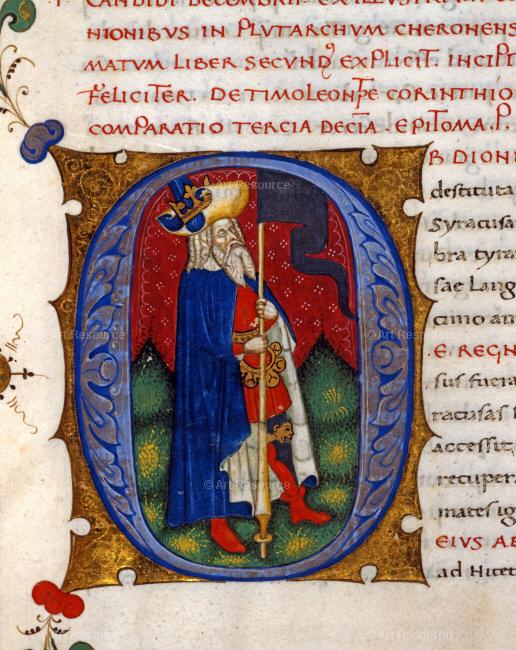 CANDIDI DECEMBRII. EX ILLUSTRIUM
NIONIBUS IN PLUTARCHUM CHERONENS
MATUM LIBER SECUNDꝰ EXPLICIT. INCIPIT
FELICITER. DE TIMOLEONTE CORINTHIO
COMPARATIO TERCIA DECIA. EPITOMA. P.
B DIONI
destituta
Syracusa
bra tyra
sae Lang
cimo an
. E. REGN
sus fuera
racusas
accessit,
recuper
mates ig
EIUS AB
ad Hicet
Art Resource